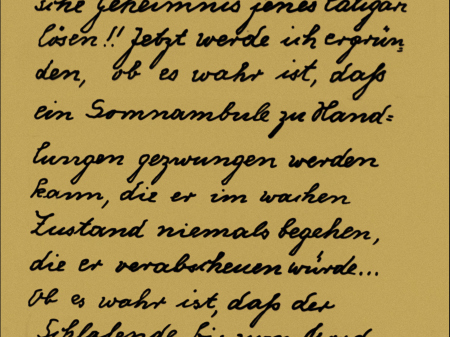 sche Geheimnis jenes Caligari
lösen!! Jetzt werde ich ergrün=
den, ob es wahr ist, daß
ein Somnambule zu Hand=
lungen gezwungen werden
kann, die er im wachen
Zustand niemals begehen,
die er verabscheuen würde...
Ob es wahr ist, daß der
Schlafende bis zum Mord